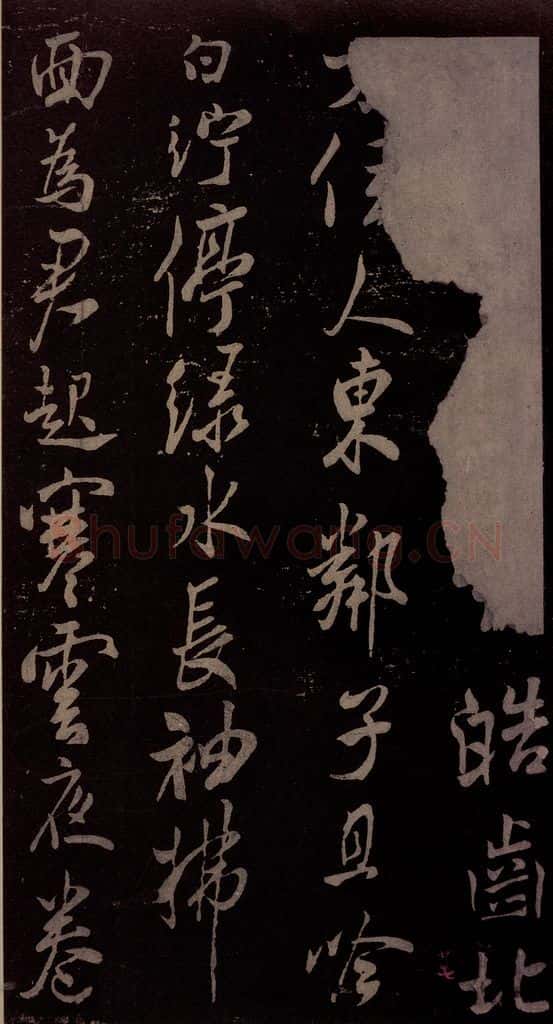 皓齒北
佳人東鄰子且吟
白紵停緑水長袖拂
面為君起寒雲夜卷
Shufawang.CN